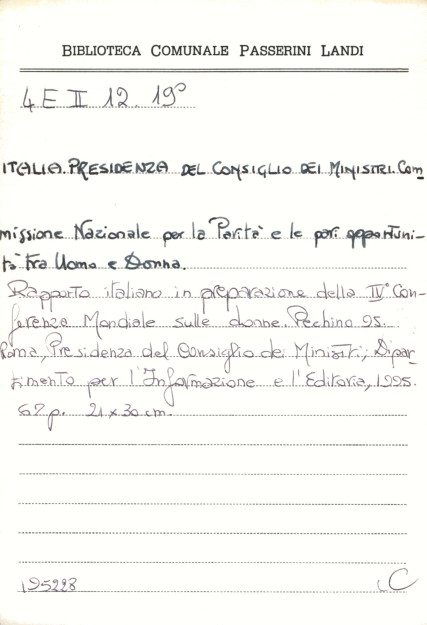 BIBLIOTECA COMUNALE PASSERINI LANDI
4 E II 12. 19°
ITALIA. PRESIDENZA DEL CONSIGLIO DEI MINISTRI. Com
missione Nazionale per la Parità e le pari opportuni-
tà tra Uomo e Donna.
Rapporto italiano in preparazione della IV° Con-
ferenza Mondiale sulle donne. Pechino 95.
Roma, Presidenza del Consiglio dei Ministri; Dipar-
timento per l'Informazione e l'Editoria, 1995.
67 p. 21 x 30 cm.
195228
C